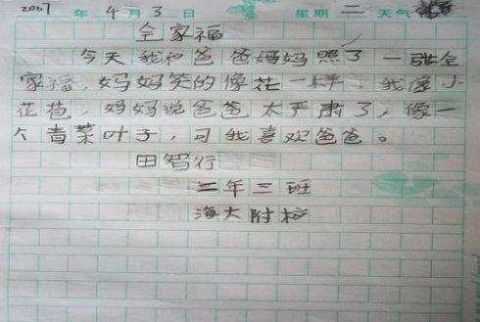 2007年 4月 3日 星期二 天气
全家福
今天我和爸爸妈妈照了一张全
家福，妈妈笑的像花一样，我像小
花苞，妈妈说爸爸太严肃了，像一
个青菜叶子，可我喜欢爸爸。
田智行
二年三班
海大附校